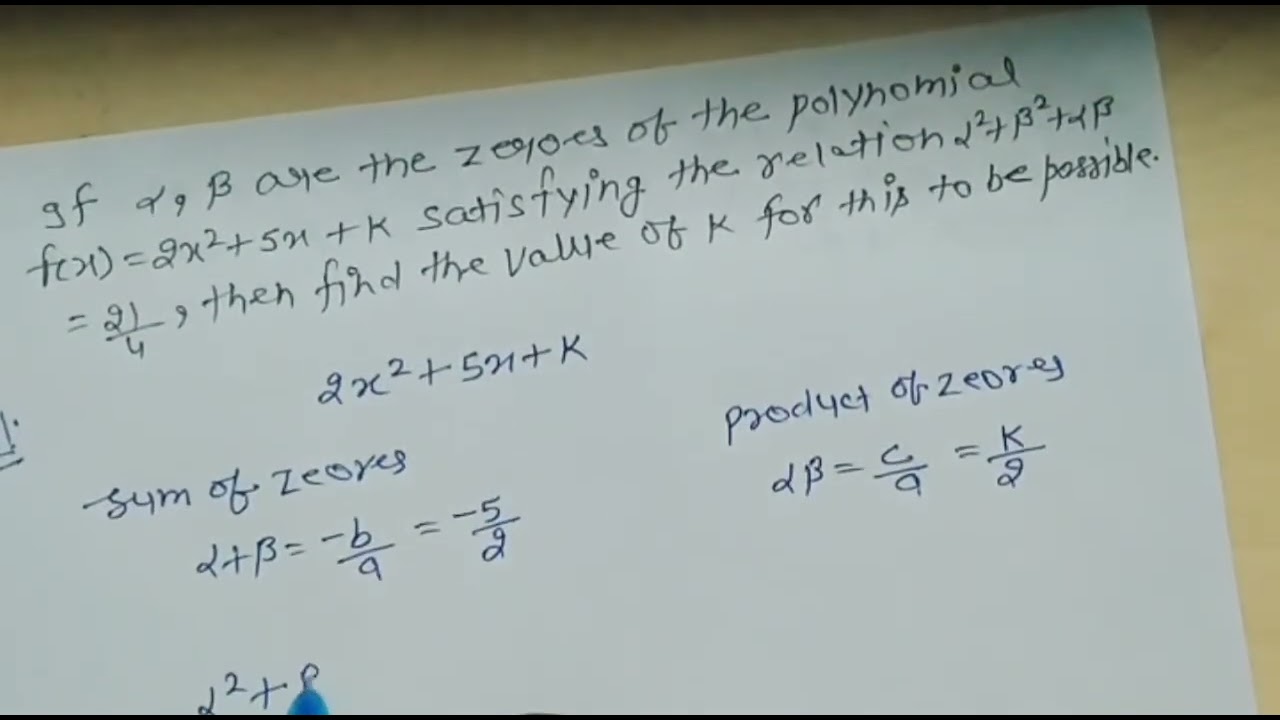 gf α, β are the zeroes of the polynomial
f(x) = 2x² + 5x + K satisfying the relation α² + β² + αβ
= 21/4, then find the value of K for this to be possible.
2x² + 5x + K
Sum of zeores
α + β = -b/a = -5/2
product of zeores
αβ = c/a = K/2
α² +